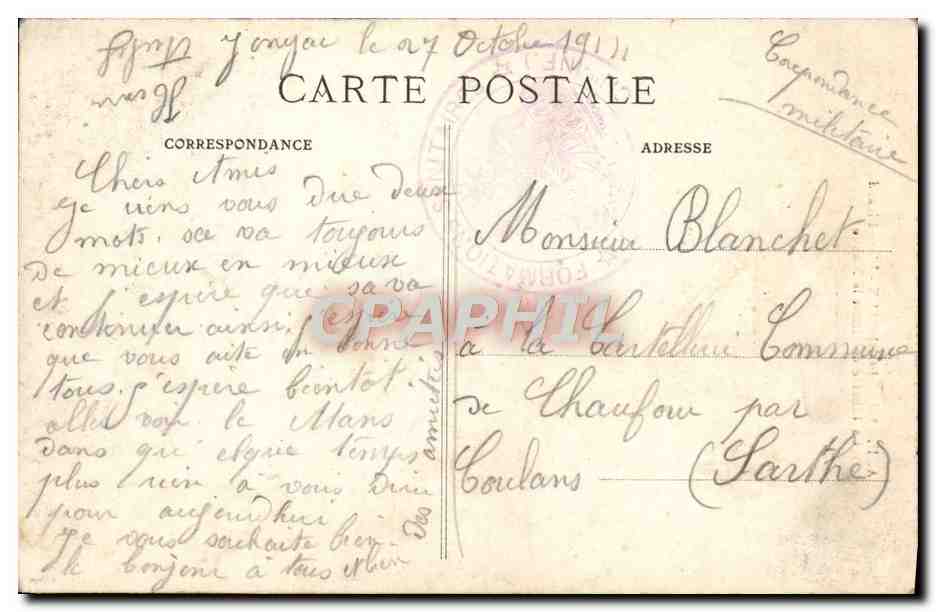 Jonzac le 27 Octobre 191
CARTE POSTALE
Correspondance
militaire
CORRESPONDANCE
ADRESSE
Chers Amis
Je viens vous dire deux
mots. sa va toujours
de mieux en mieux
et j'espère que sa va
continuer ainsi j'espère
que vous aite en bonne
tous. j'espère bientot
aller voir le Mans
dans qu'elque temps
plus rien à vous dire
pour aujourdhui
Je vous souhaite bien
le bonjour à tous
des amities
Monsieur Blanchet
à la Commune
de Chaufour par
Coulans (Sarthe)
FORMATION
CPAPHIL